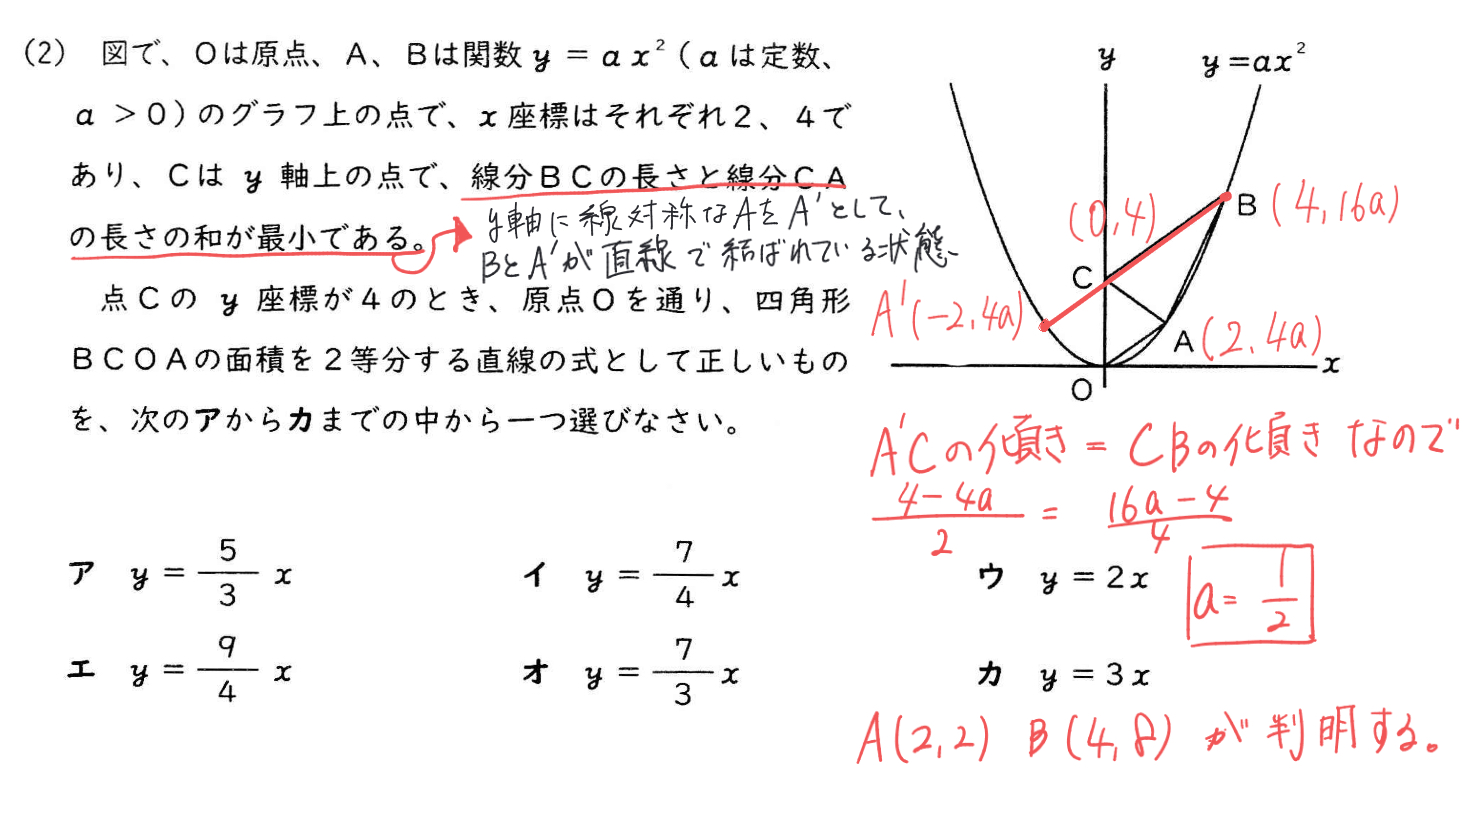 (2) 図で、Oは原点、A、Bは関数 y = a x² ( a は定数、
a ＞0) のグラフ上の点で、x 座標はそれぞれ2、4で
あり、Cは y 軸上の点で、線分BCの長さと線分CA
の長さの和が最小である。
y軸に線対称なAをA'として、
BとA'が直線で結ばれている状態
点Cの y 座標が4のとき、原点Oを通り、四角形
BCOAの面積を2等分する直線の式として正しいもの
を、次のアからカまでの中から一つ選びなさい。
y
y = ax²
B (4, 16a)
(0, 4)
C
A'(-2, 4a)
A (2, 4a)
x
O
A'Cの傾き = CBの傾き なので
(4-4a)/2 = (16a-4)/4
a = 1/2
ア y = 5/3 x
イ y = 7/4 x
ウ y = 2x
エ y = 9/4 x
オ y = 7/3 x
カ y = 3x
A(2, 2) B(4, 8) が判明する。